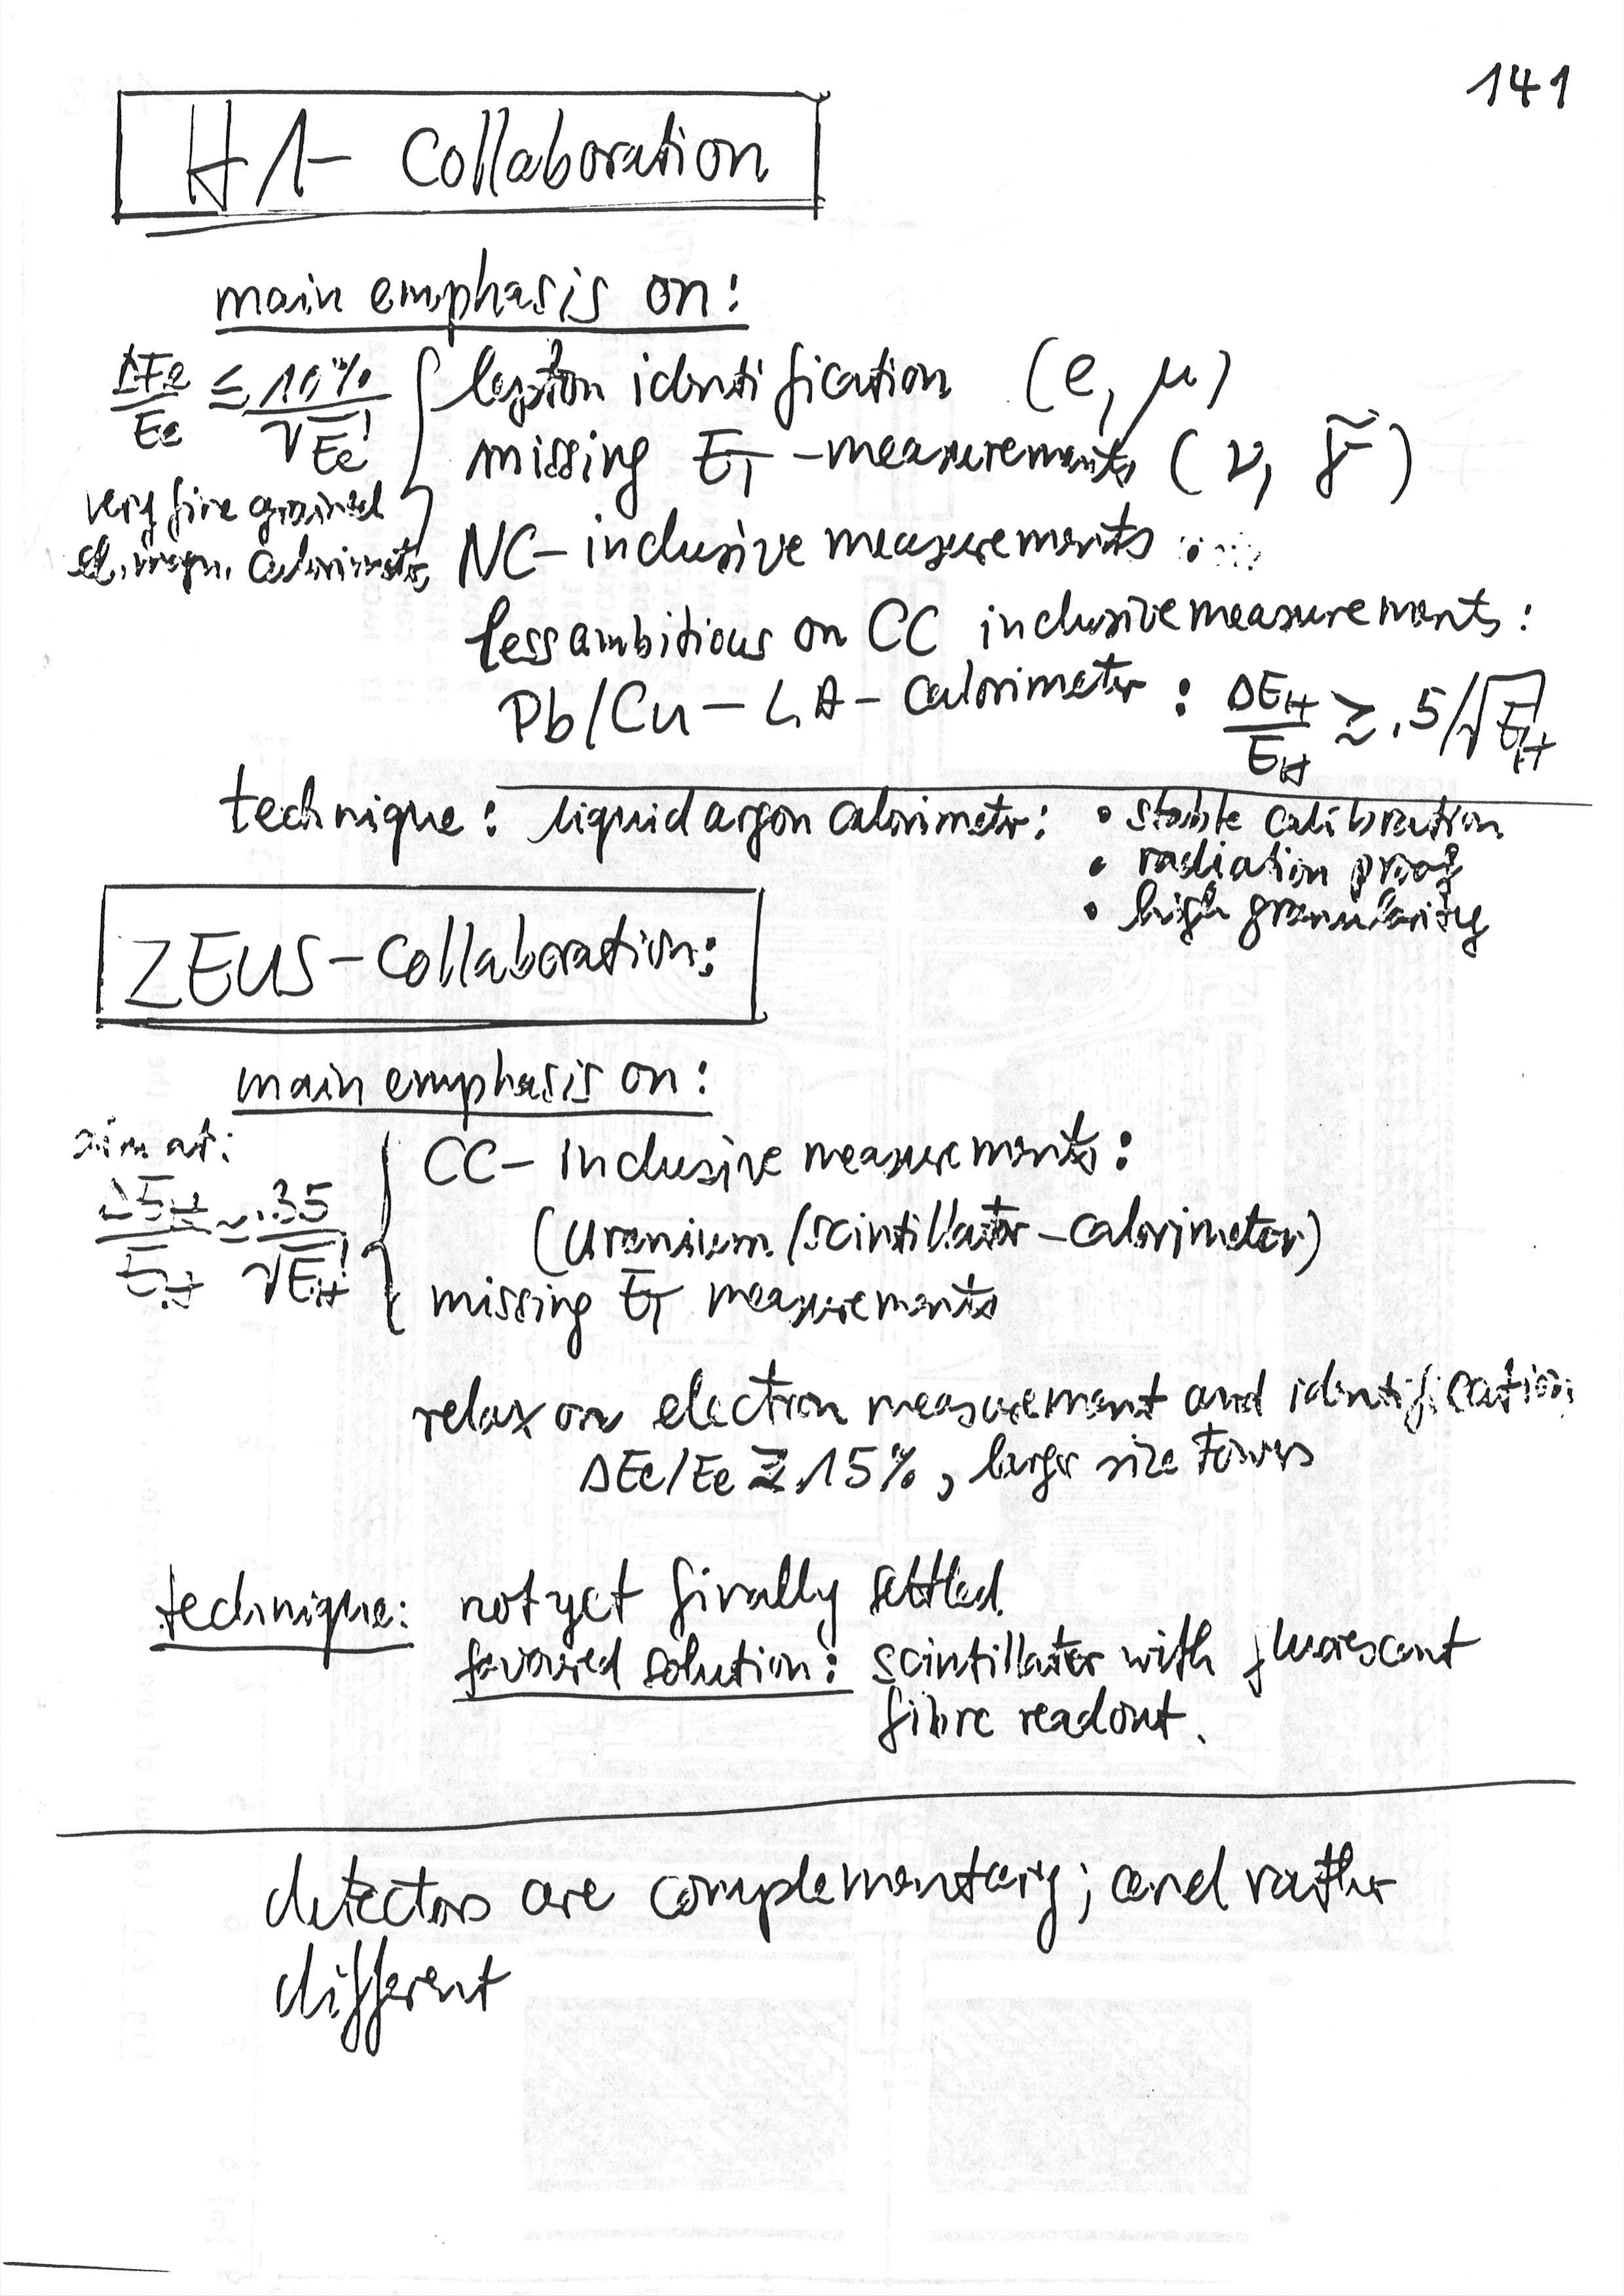 141
H1- Collaboration
main emphasis on:
ΔEe/Ee ≤ 10%/√Ee
very fine grained
el. magn. calorimeter
lepton identification (e, μ)
missing E_T -measurements (ν, γ̃)
NC- inclusive measurements
less ambitious on CC inclusive measurements:
Pb/Cu – LA – Calorimeter : ΔE_H/E_H ≳ .5/√E_H
technique: liquid argon calorimeter: • stable calibration
• radiation proof
• high granularity
ZEUS-Collaboration:
main emphasis on:
aim at:
ΔE_H/E_H ≃ .35/√E_H
CC- inclusive measurements:
(Uranium/scintillator-calorimeter)
missing E_T measurements
relax on electron measurement and identification:
ΔEe/Ee ≳ 15%, larger size towers
technique: not yet finally settled.
favoured solution: scintillator with fluorescent
fibre readout.
detectors are complementary; and rather
different